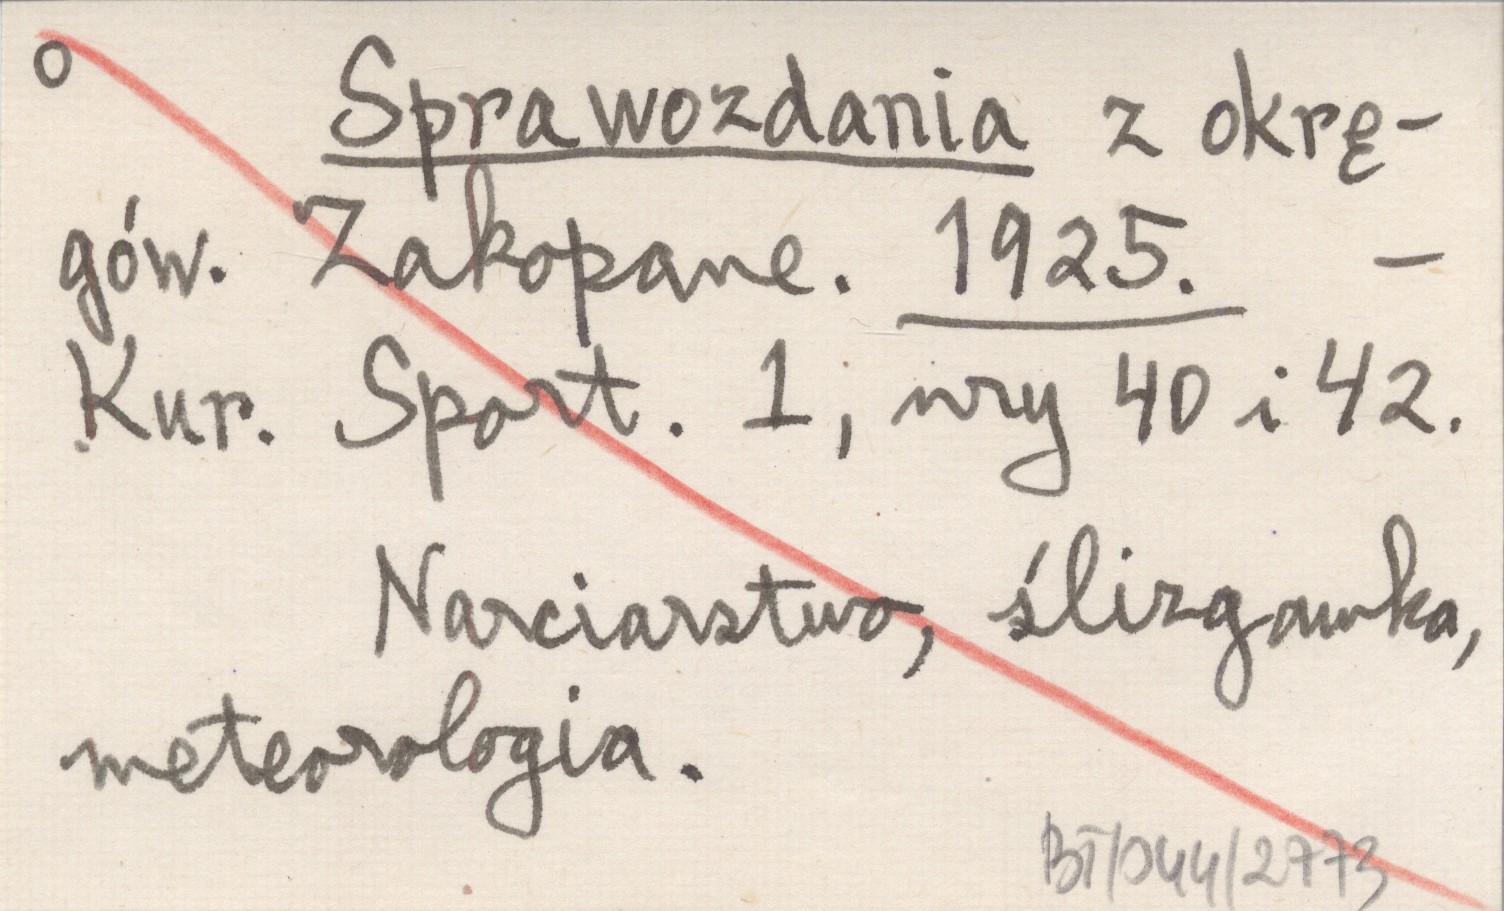 o
Sprawozdania z okrę-
gów. Zakopane. 1925. –
Kur. Sport. 1, nry 40 i 42.
Narciarstwo, ślizgawka,
meteorologia.
BT/044/2773